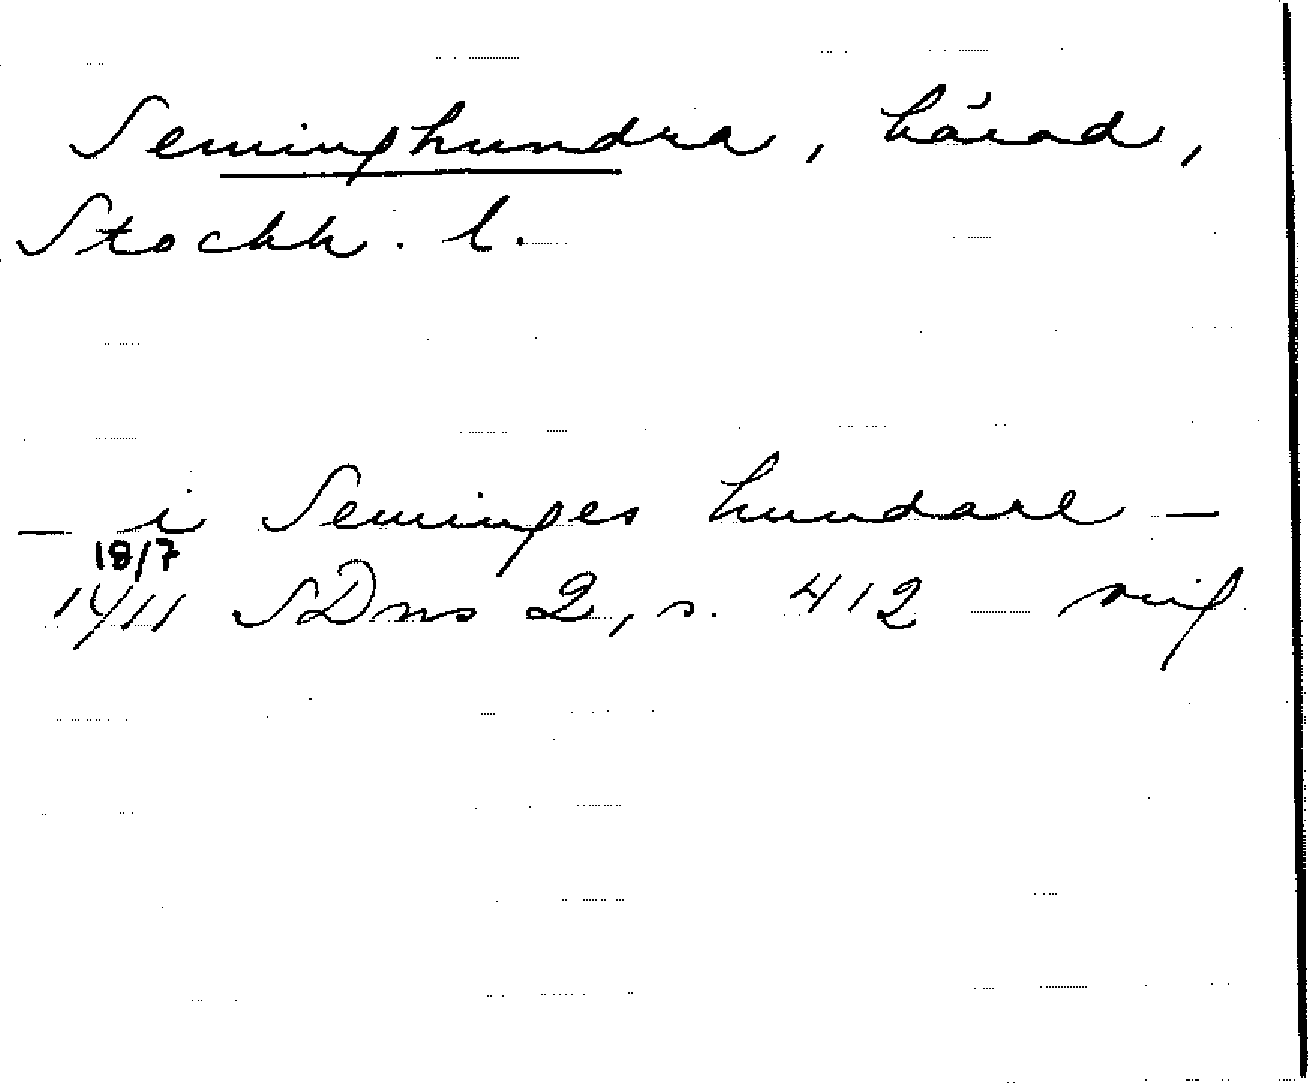 Seminghundra, härad,
Stockh. l.
– i Seminges hundare –
18/7
1411 SDns 2, s. 412 — orig